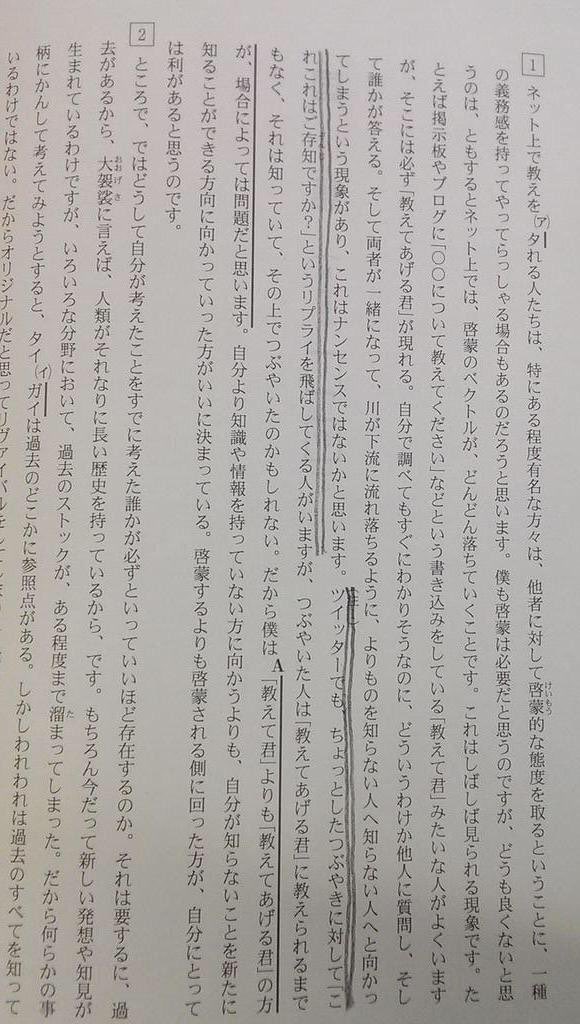 1 ネット上で教えを(ア)タれる人たちは、特にある程度有名な方々は、他者に対して啓蒙的な態度を取るということに、一種
の義務感を持ってやってらっしゃる場合もあるのだろうと思います。僕も啓蒙は必要だと思うのですが、どうも良くないと思
うのは、ともするとネット上では、啓蒙のベクトルが、どんどん落ちていくことです。これはしばしば見られる現象です。た
とえば掲示板やブログに「〇〇について教えてください」などという書き込みをしている「教えて君」みたいな人がよくいます
が、そこには必ず「教えてあげる君」が現れる。自分で調べてもすぐにわかりそうなのに、どういうわけか他人に質問し、そし
て誰かが答える。そして両者が一緒になって、川が下流に流れ落ちるように、よりものを知らない人へ知らない人へと向かっ
てしまうという現象があり、これはナンセンスではないかと思います。ツイッターでも、ちょっとしたつぶやきに対して「こ
れこれはご存知ですか?」というリプライを飛ばしてくる人がいますが、つぶやいた人は「教えてあげる君」に教えられるまで
もなく、それは知っていて、その上でつぶやいたのかもしれない。だから僕はA「教えて君」よりも「教えてあげる君」の方
が、場合によっては問題だと思います。自分より知識や情報を持っていない方に向かうよりも、自分が知らないことを新たに
知ることができる方向に向かっていった方がいいに決まっている。啓蒙するよりも啓蒙される側に回った方が、自分にとって
は利があると思うのです。
2 ところで、ではどうして自分が考えたことをすでに考えた誰かが必ずといっていいほど存在するのか。それは要するに、過
去があるから、大袈裟に言えば、人類がそれなりに長い歴史を持っているから、です。もちろん今だって新しい発想や知見が
生まれているわけですが、いろいろな分野において、過去のストックが、ある程度まで溜まってしまった。だから何らかの事
柄にかんして考えてみようとすると、タイ(イ)ガイは過去のどこかに参照点がある。しかしわれわれは過去のすべてを知って
いるわけではない。だからオリジナルだと思ってリヴァイバルを